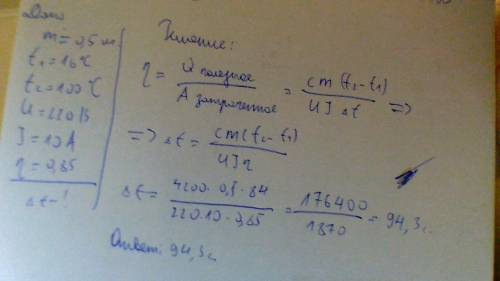 Дано
m = 0,5 кг
t₁ = 16°C
t₂ = 100°C
U = 220 В
J = 10 A
η = 0,85
Δt - ?
Решение:
η = Q полезное / A затраченное = cm(t₂-t₁) / UJ Δt =>
=> Δt = cm(t₂-t₁) / UJη
Δt = 4200·0,5·84 / 220·10·0,85 = 176400 / 1870 = 94,3 с.
Ответ: 94,3с